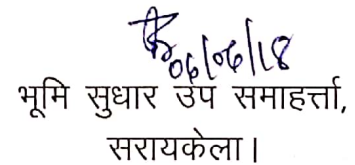 06/06/18
भूमि सुधार उप समाहर्त्ता,
सरायकेला।